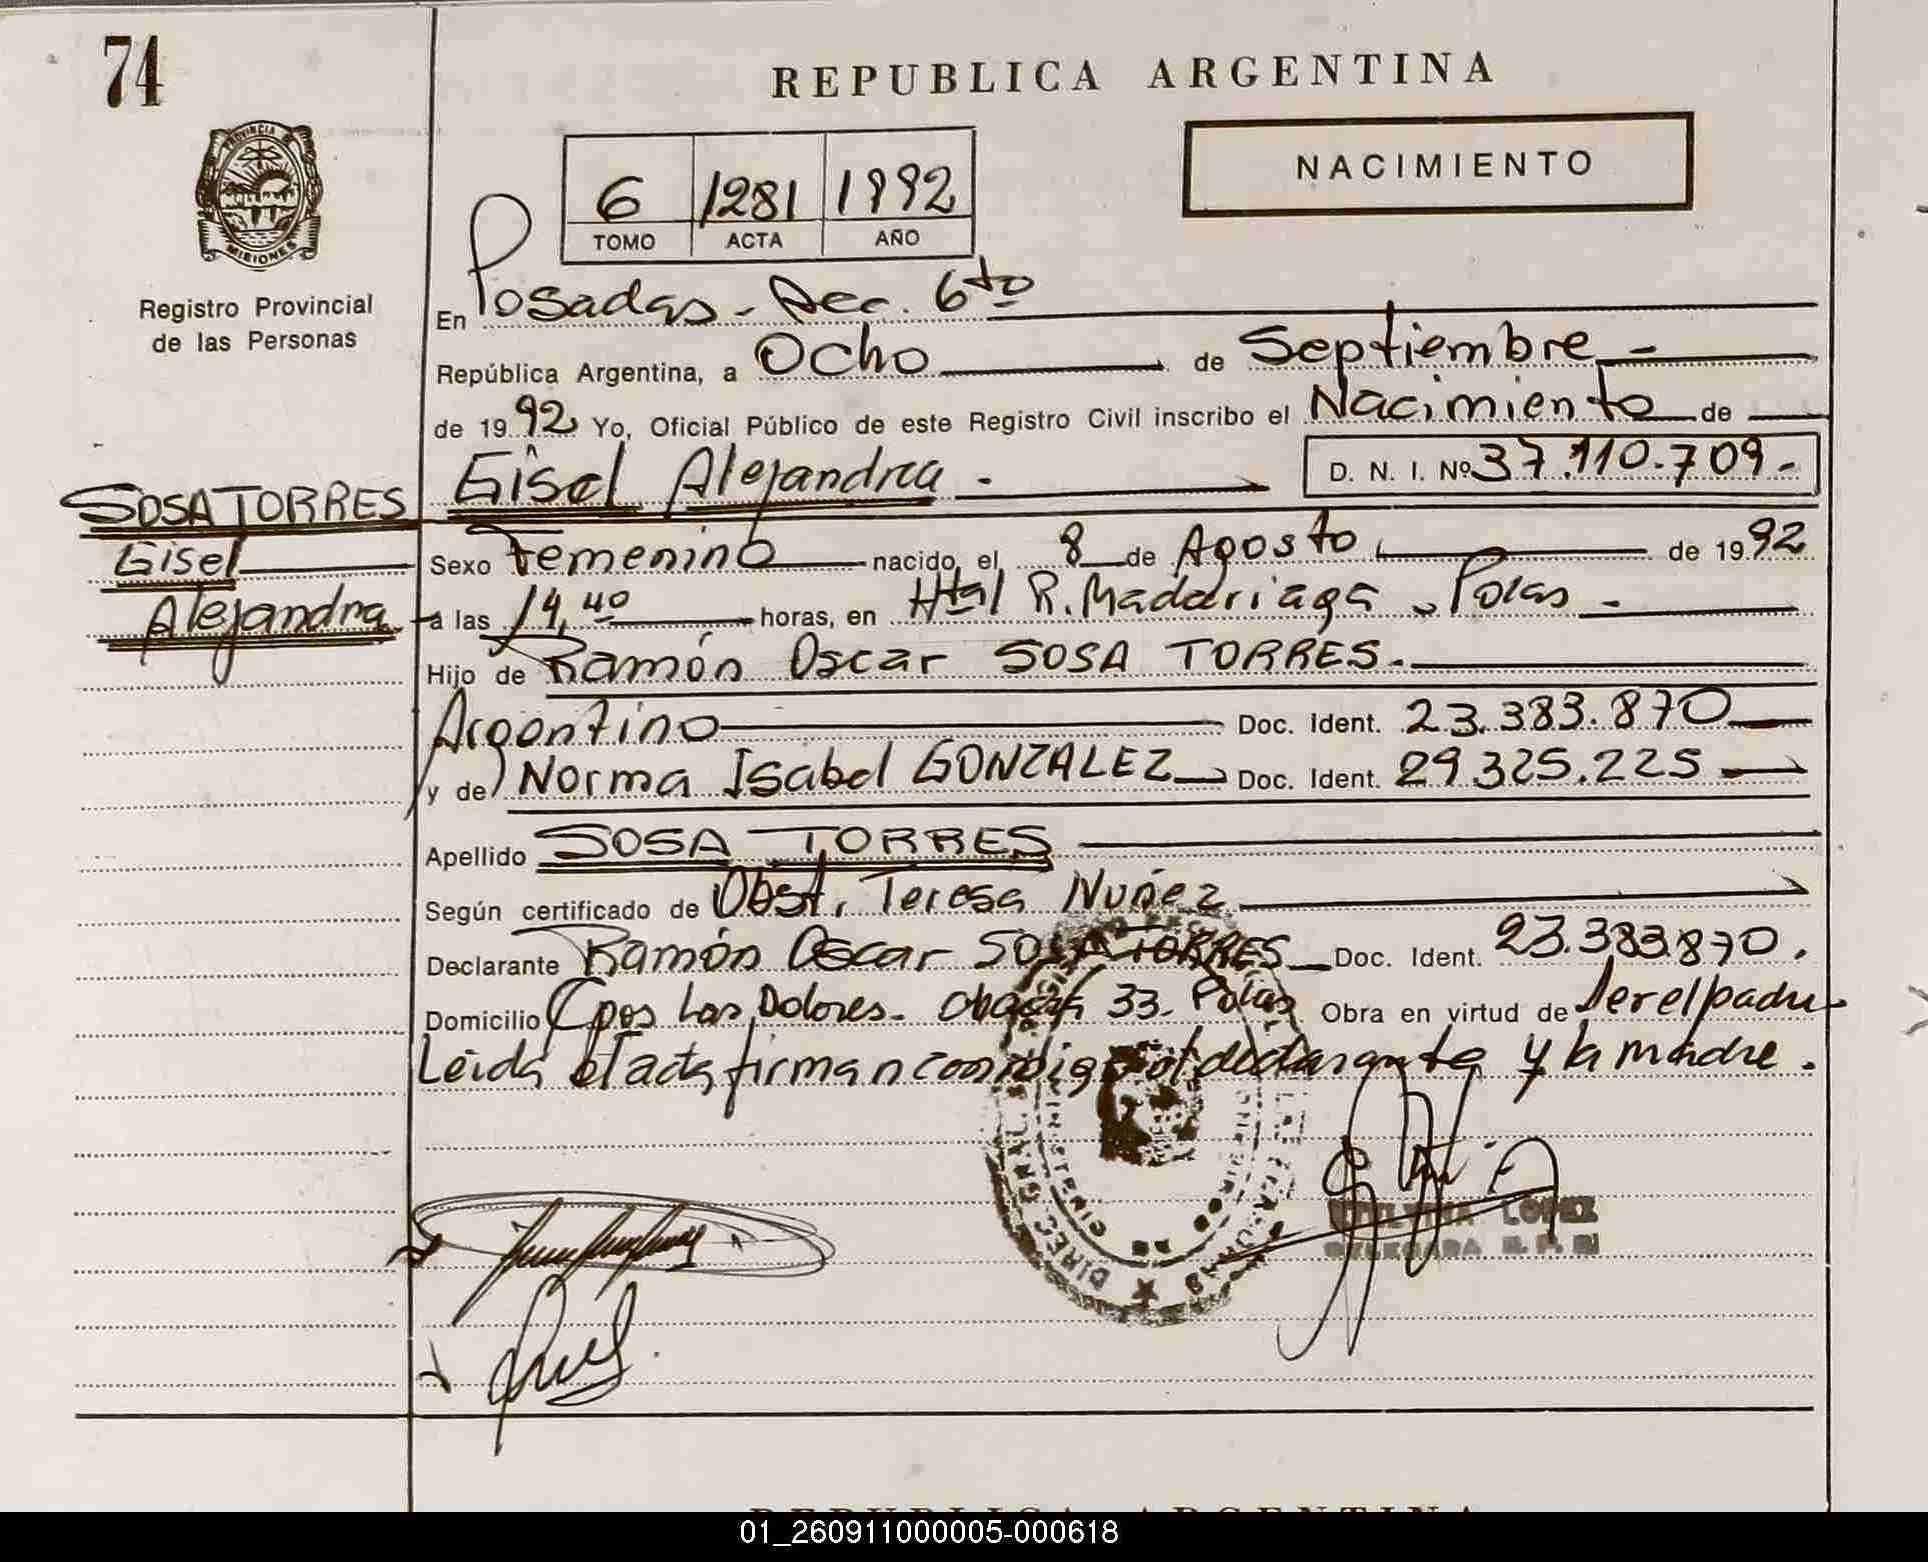 74
REPUBLICA ARGENTINA
NACIMIENTO
6 1281 1992
TOMO ACTA AÑO
PROVINCIA
MISIONES
Registro Provincial
de las Personas
En Posadas - Sec. 6to
República Argentina, a Ocho de Septiembre
de 1992 Yo, Oficial Público de este Registro Civil inscribo el Nacimiento de
Gisel Alejandra - D. N. I. Nº 37.110.709-
SOSA TORRES
Gisel
Alejandra
Sexo Femenino nacido el 8 de Agosto de 1992
a las 14,40 horas, en Htal R. Madariaga
Hijo de Ramón Oscar SOSA TORRES.
Argentino Doc. Ident. 23.383.870
y de Norma Isabel GONZALEZ Doc. Ident. 29.325.225
Apellido SOSA TORRES
Según certificado de Obst. Teresa Nuñez
Declarante Ramón Oscar SOSA TORRES Doc. Ident. 23.383.870.
Domicilio Los Dolores - 33. Obra en virtud de ser el padre
Leida el acta firman conmigo el declarante y la madre.
LOPEZ
01_260911000005-000618